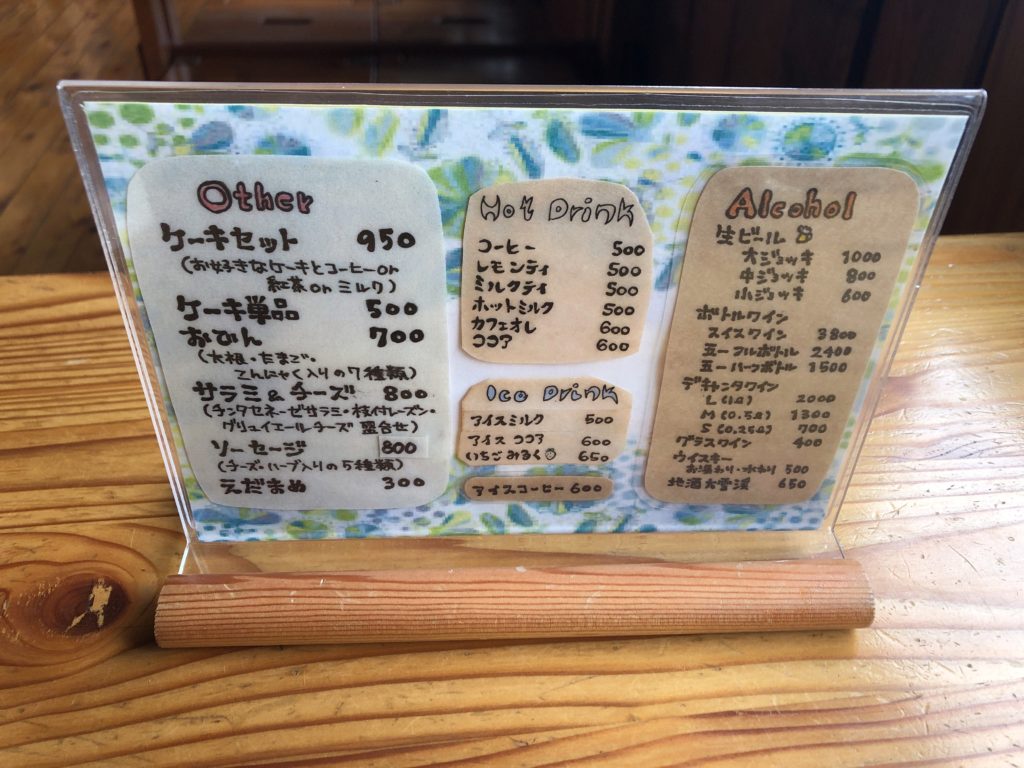 Other
ケーキセット 950
(お好きなケーキとコーヒーor
紅茶orミルク)
ケーキ単品 500
おでん 700
(大根・たまご・
こんにゃく入りの7種類)
サラミ&チーズ 800
(チンタセネーゼサラミ・枝付レーズン・
グリュイエールチーズ 盛合せ)
ソーセージ 800
(チーズ・ハーブ入りの5種類)
えだまめ 300
Hot Drink
コーヒー 500
レモンティ 500
ミルクティ 500
ホットミルク 500
カフェオレ 600
ココア 600
Ice Drink
アイスミルク 500
アイスココア 600
いちごみるく 650
アイスコーヒー 600
Alcohol
生ビール
大ジョッキ 1000
中ジョッキ 800
小ジョッキ 600
ボトルワイン
スイスワイン 3800
五一フルボトル 2400
五一ハーフボトル 1500
デキャンタワイン
L(1ℓ) 2000
M(0.5ℓ) 1300
S(0.25ℓ) 700
グラスワイン 400
ウイスキー
お湯わり・水わり 500
地酒大雪渓 650